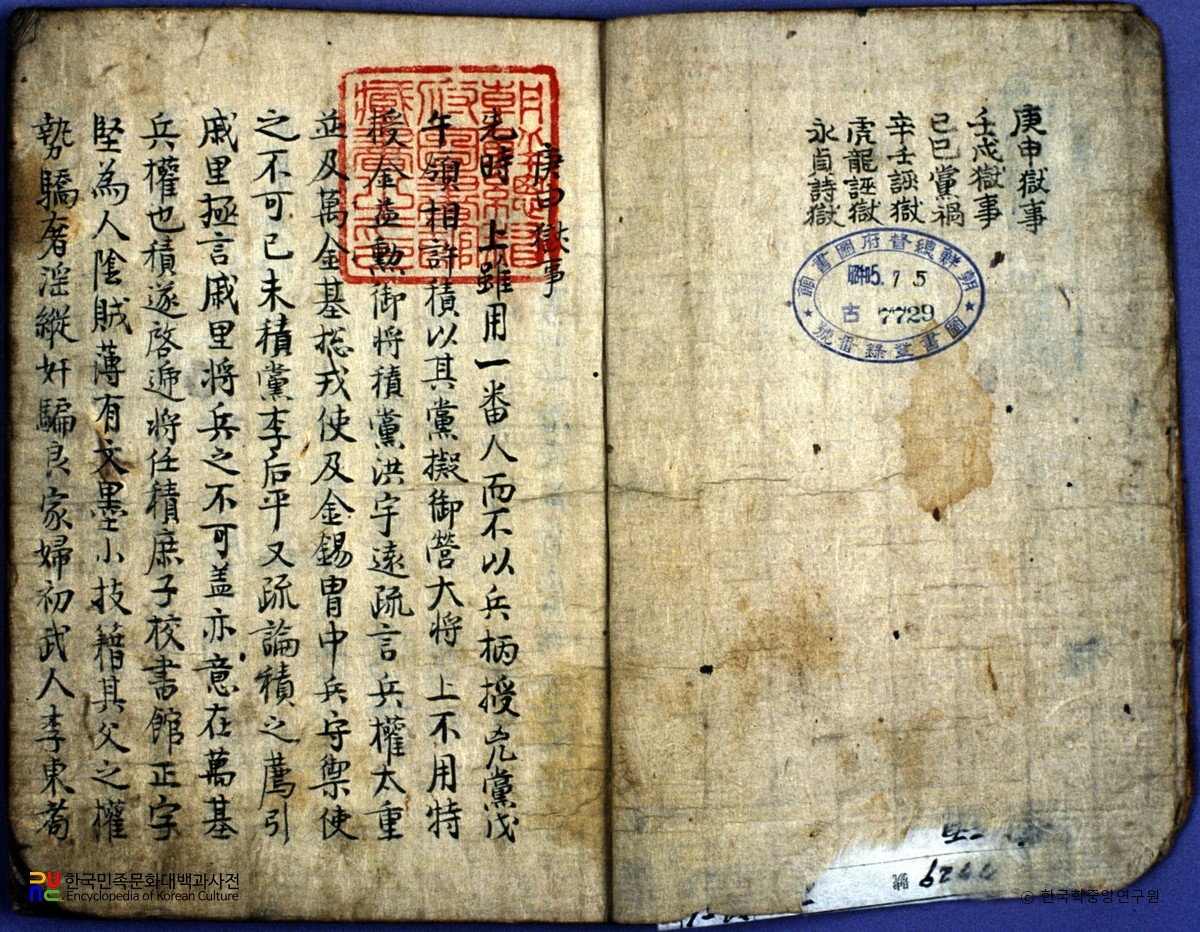 庚申獄事
壬戌獄事
己巳黨禍
辛壬誣獄
虎龍誣獄
永貞詩獄
朝鮮總督府圖書館
昭和5.7.5
古 7729
圖書登錄番號
庚申獄事
先時 上雖用一番人而不以兵柄授凶黨戊
午領相許積以其黨擬御營大將 上不用特
授金益勳御將積黨洪宇遠疏言兵權太重
並及萬金基摠戎使及金錫冑中兵守禦使
之不可己未積黨李后平又疏論積之薦引
戚里極言戚里將兵之不可盖亦意在萬基
兵權也積遂啓遞將任積庶子校書館正字
堅為人陰賊薄有文墨小技籍其父之權
勢驕奢淫縱奸騙良家婦初武人李東耈
7729 號
한국민족문화대백과사전
Encyclopedia of Korean Culture
ⓒ 한국학중앙연구원.